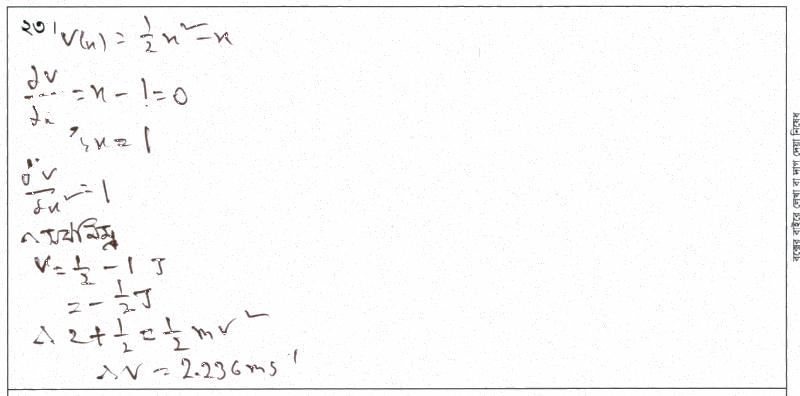 ২৩। V(x) = 1/2 x² - x
dV/dx = x - 1 = 0
∴ x = 1
d²V/dx² = 1
∴ সর্বনিম্ন
V = 1/2 - 1 J
= - 1/2 J
∴ 2 + 1/2 = 1/2 mv²
∴ v = 2.236 ms⁻¹
বক্সের বাইরে লেখা বা দাগ দেয়া নিষেধ